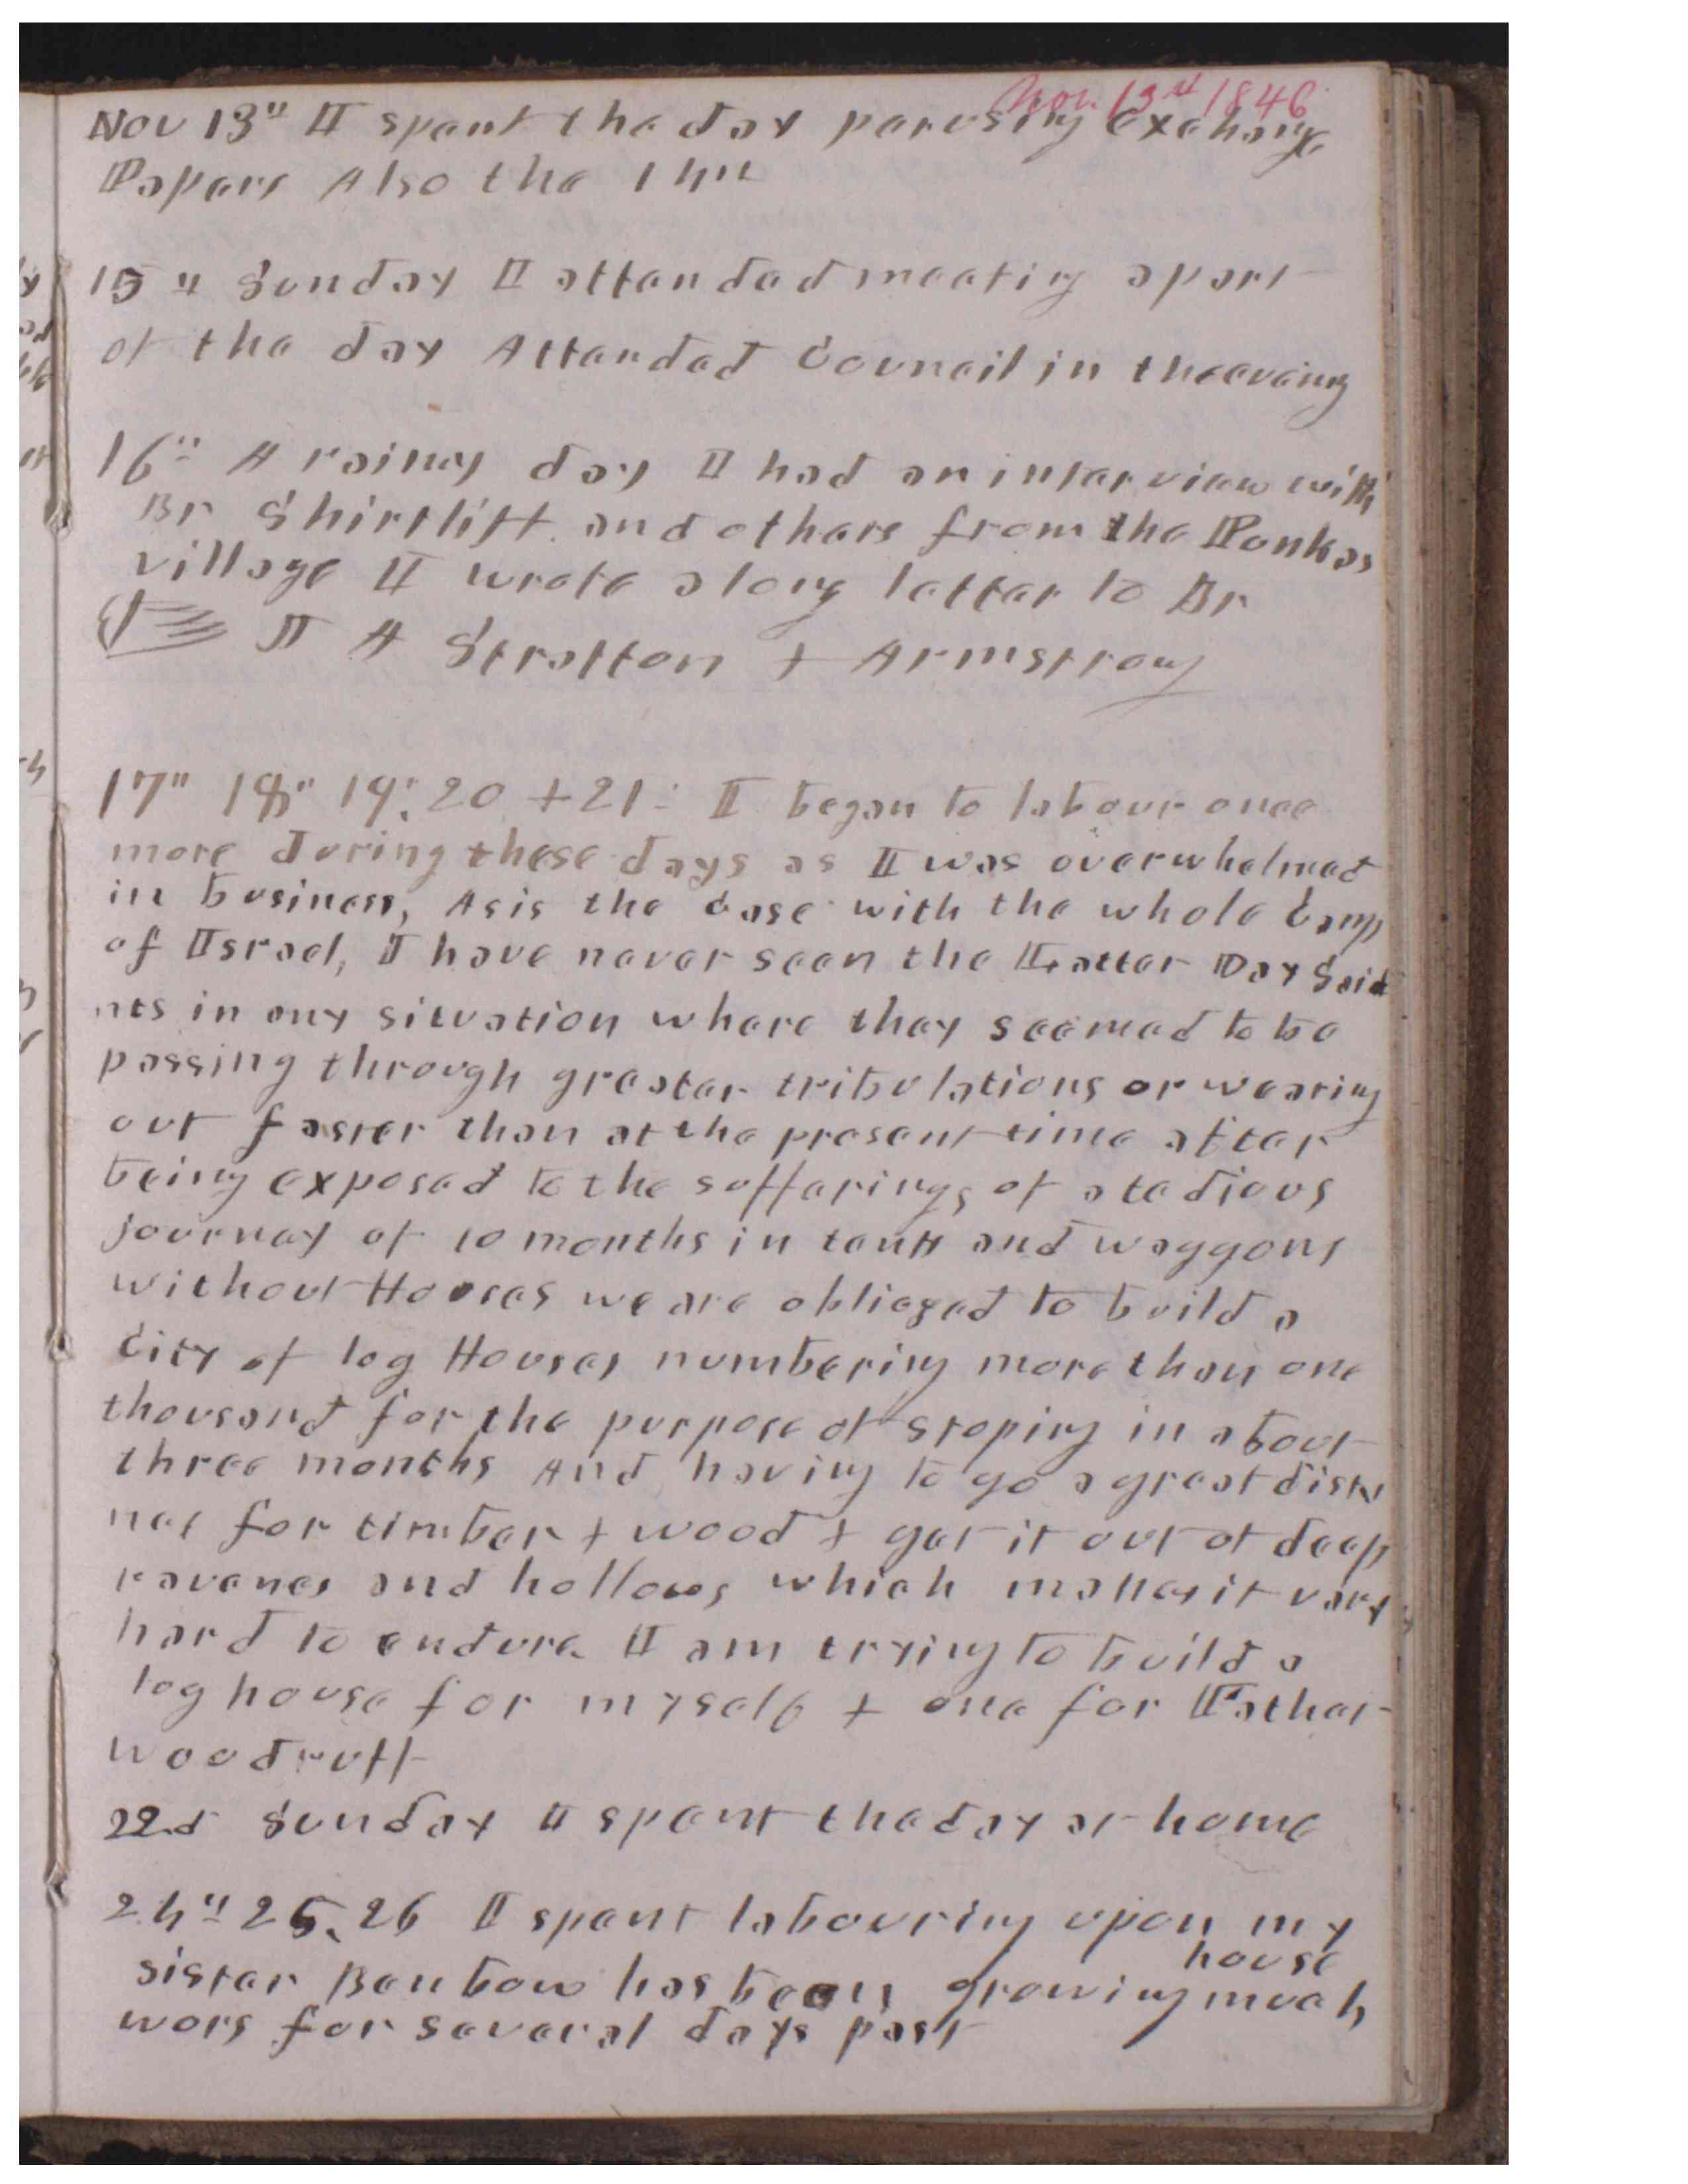 Nov. 13th 1846
Nov 13th I spent the day perusing exchange
Papers Also the 14th
15th Sunday I attended meeting a part
of the day Attended Council in the evening
16th A rainey day I had an interview with
Br Shirtliff and others from the Punkas
village I wrote a long letter to Br
J A Stratton & Armstrong
17th 18th 19th 20 & 21st I began to labour once
more during these days as I was overwhelmed
in business, As is the case with the whole Camp
of Israel, I have never seen the Latter Day Sai
nts in any situation where they seemed to be
passing through greater tribulations or wearing
out faster than at the present time after
being exposed to the sufferings of a tedious
journey of 10 months in tents and waggons
without Houses we are obliged to build a
City of log Houses numbering more than one
thousand for the purpose of stoping in about
three months And having to go a great dista
nce for timber & wood & get it out of deep
ravenes and hollows which makes it very
hard to endure I am trying to build a
log house for myself & one for Father
Woodruff
22nd Sunday I spent the day at home
24th 25, 26 I spent labouring upon my
house
Sister Benbow has been growing much
wors for several days past